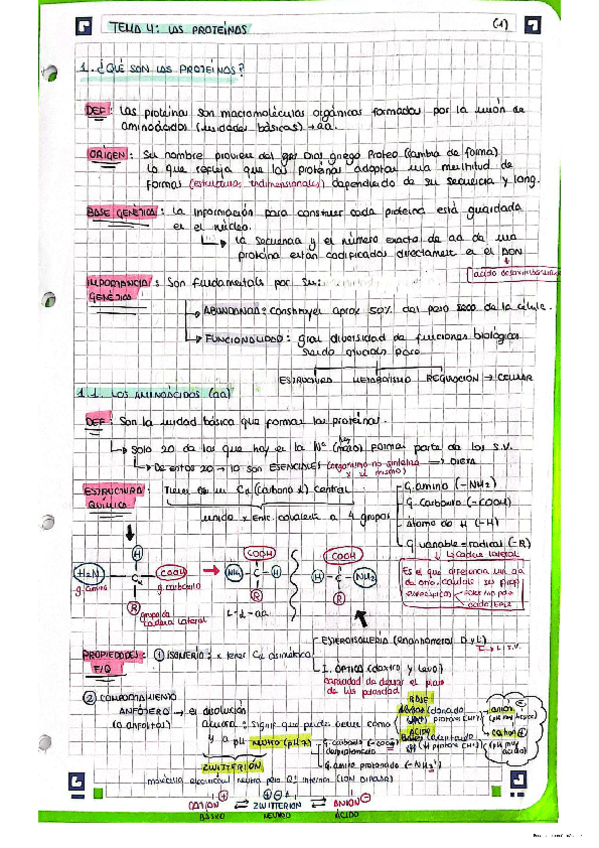 TEMA 4: LAS PROTEÍNAS (1)
1. ¿QUÉ SON LAS PROTEÍNAS?
DEF: Las proteínas son macromoléculas orgánicas formadas por la unión de
aminoácidos (unidades básicas) → aa.
ORIGEN: Su nombre proviene del Dios griego Proteo (cambia de forma)
lo que refleja que las proteínas adoptan una multitud de
formas (estructuras tridimensionales) dependiendo de su secuencia y long.
BASE GENÉTICA: La información para construir cada proteína está guardada
en el núcleo.
↳ la secuencia y el número exacto de aa de una
proteína están codificados directamente en el ADN
IMPORTANCIA: Son fundamentals por su:
GENÉTICA
↳ ABUNDANCIA: construyen aprox 50% del peso seco de la célula.
↳ FUNCIONALIDAD: gran diversidad de funciones biológicas
siendo cruciales para
ESTRUCTURA METABOLISMO REGULACIÓN → CELULAR
1.1. LOS AMINOÁCIDOS (aa)
DEF: Son la unidad básica que forman las proteínas.
↳ Solo 20 de los que hay en la Na forman parte de los S.V.
↳ De estos 20 → 10 son ESENCIALES (organismo no sintetiza → DIETA
x sí mismo)
ESTRUCTURA: Tienen un Cα (carbono α) central
QUÍMICA
unido x enlc. covalente a 4 grupos
G. amino (-NH2)
G. carboxilo (-COOH)
Átomo de H (-H)
G variable = radical (-R)
↳ cadena lateral
Es el que diferencia un aa
de otro, confiere sus prop
H H2N Cα COOH R
g. amino g. carboxilo
grupo de
cadena lateral
COOH NH2 C H R
L-α-aa
COOH H C NH2 R
PROPIEDADES: ① ISOMERÍA: x tener Cα asimétrico
F/Q
ESTEROISOMERÍA (enantiómeros D y L)
↳ L: S.V.
I. ÓPTICA (dextro y levo)
capacidad de desviar el plano
de luz polarizada
② COMPORTAMIENTO
ANFÓTERO → en disolución
(o anfolitos) acuosa: signif que pueden actuar como
y a pH NEUTRO (pH 7)
G. carboxilo (-COO⁻)
desprotonado
G. amino protonado (-NH3⁺)
BASE
ÁCIDO
anión
catión
ZWITTERIÓN
molécula eléctricam neutra pero Qª interna (IÓN DIPOLAR)
CATIÓN ⇌ ZWITTERION ⇌ ANIÓN
BÁSICO NEUTRO ÁCIDO